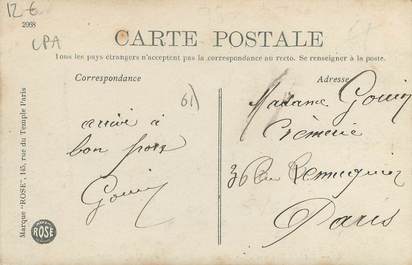 12 €
2098
CPA
CARTE POSTALE
Tous les pays étrangers n'acceptent pas la correspondance au recto. Se renseigner à la poste.
Correspondance
Adresse
61)
arrivé à
bon port
Gouin
Madame Gouin
Crèmerie
36 Rue
Paris
Marque "ROSE", 145, rue du Temple Paris
ROSE